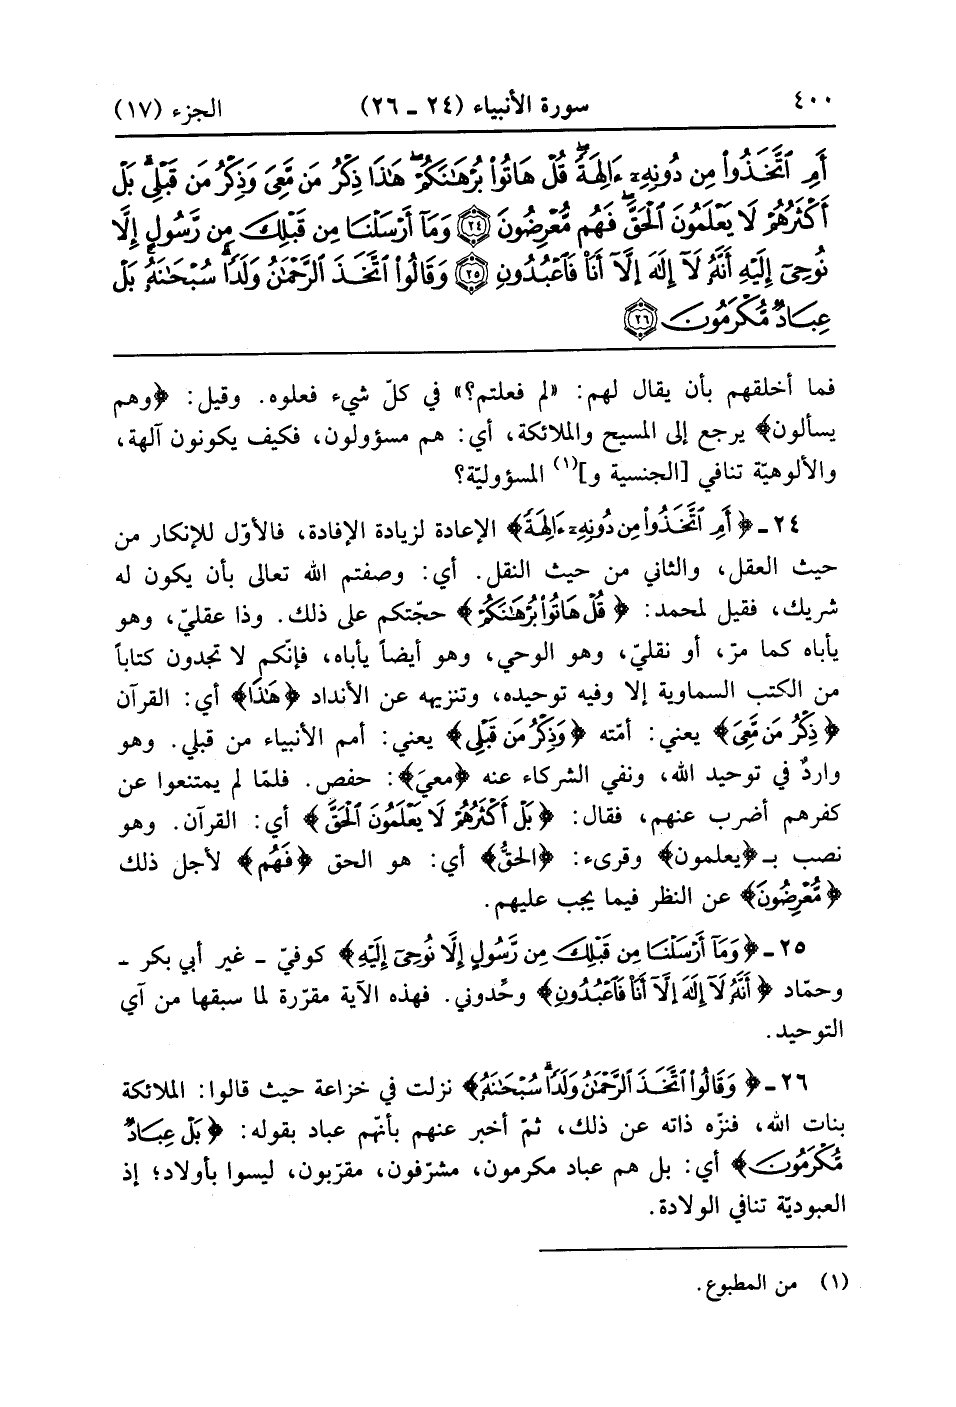 ٤٠٠ سورة الأنبياء (٢٤ ـ ٢٦) الجزء (١٧)
أَمِ ٱتَّخَذُوا۟ مِن دُونِهِۦٓ ءَالِهَةًۖ قُلْ هَاتُوا۟ بُرْهَـٰنَكُمْۖ هَـٰذَا ذِكْرُ مَن مَّعِىَ وَذِكْرُ مَن قَبْلِىۗ بَلْ
أَكْثَرُهُمْ لَا يَعْلَمُونَ ٱلْحَقَّۖ فَهُم مُّعْرِضُونَ ٢٤ وَمَآ أَرْسَلْنَا مِن قَبْلِكَ مِن رَّسُولٍ إِلَّا
نُوحِىٓ إِلَيْهِ أَنَّهُۥ لَآ إِلَـٰهَ إِلَّآ أَنَا۠ فَٱعْبُدُونِ ٢٥ وَقَالُوا۟ ٱتَّخَذَ ٱلرَّحْمَـٰنُ وَلَدًاۗ سُبْحَـٰنَهُۥۚ بَلْ
عِبَادٌ مُّكْرَمُونَ ٢٦
فما أخلقهم بأن يقال لهم: «لم فعلتم؟» في كلّ شيء فعلوه. وقيل: ﴿وهم
يسألون﴾ يرجع إلى المسيح والملائكة، أي: هم مسؤولون، فكيف يكونون آلهة،
والألوهيّة تنافي [الجنسية و](١) المسؤوليّة؟
٢٤ ـ ﴿أَمِ ٱتَّخَذُوا۟ مِن دُونِهِۦٓ ءَالِهَةً﴾ الإعادة لزيادة الإفادة، فالأوّل للإنكار من
حيث العقل، والثاني من حيث النقل. أي: وصفتم الله تعالى بأن يكون له
شريك، فقيل لمحمد: ﴿قُلْ هَاتُوا۟ بُرْهَـٰنَكُمْ﴾ حجّتكم على ذلك. وذا عقليّ، وهو
يأباه كما مرّ، أو نقليّ، وهو الوحي، وهو أيضاً يأباه، فإنّكم لا تجدون كتاباً
من الكتب السماوية إلا وفيه توحيده، وتنزيهه عن الأنداد ﴿هَـٰذَا﴾ أي: القرآن
﴿ذِكْرُ مَن مَّعِىَ﴾ يعني: أمّته ﴿وَذِكْرُ مَن قَبْلِى﴾ يعني: أمم الأنبياء من قبلي. وهو
واردٌ في توحيد الله، ونفي الشركاء عنه ﴿معيَ﴾: حفص. فلمّا لم يمتنعوا عن
كفرهم أضرب عنهم، فقال: ﴿بَلْ أَكْثَرُهُمْ لَا يَعْلَمُونَ ٱلْحَقَّ﴾ أي: القرآن. وهو
نصب بـ ﴿يعلمون﴾ وقرىء: ﴿الحقُّ﴾ أي: هو الحق ﴿فَهُم﴾ لأجل ذلك
﴿مُّعْرِضُونَ﴾ عن النظر فيما يجب عليهم.
٢٥ ـ ﴿وَمَآ أَرْسَلْنَا مِن قَبْلِكَ مِن رَّسُولٍ إِلَّا نُوحِىٓ إِلَيْهِ﴾ كوفيّ ـ غير أبي بكر ـ
وحمّاد ﴿أَنَّهُۥ لَآ إِلَـٰهَ إِلَّآ أَنَا۠ فَٱعْبُدُونِ﴾ وحّدوني. فهذه الآية مقرّرة لما سبقها من آي
التوحيد.
٢٦ ـ ﴿وَقَالُوا۟ ٱتَّخَذَ ٱلرَّحْمَـٰنُ وَلَدًاۗ سُبْحَـٰنَهُۥ﴾ نزلت في خزاعة حيث قالوا: الملائكة
بنات الله، فنزّه ذاته عن ذلك، ثمّ أخبر عنهم بأنهّم عباد بقوله: ﴿بَلْ عِبَادٌ
مُّكْرَمُونَ﴾ أي: بل هم عباد مكرمون، مشرّفون، مقرّبون، ليسوا بأولاد؛ إذ
العبوديّة تنافي الولادة.
(١) من المطبوع.